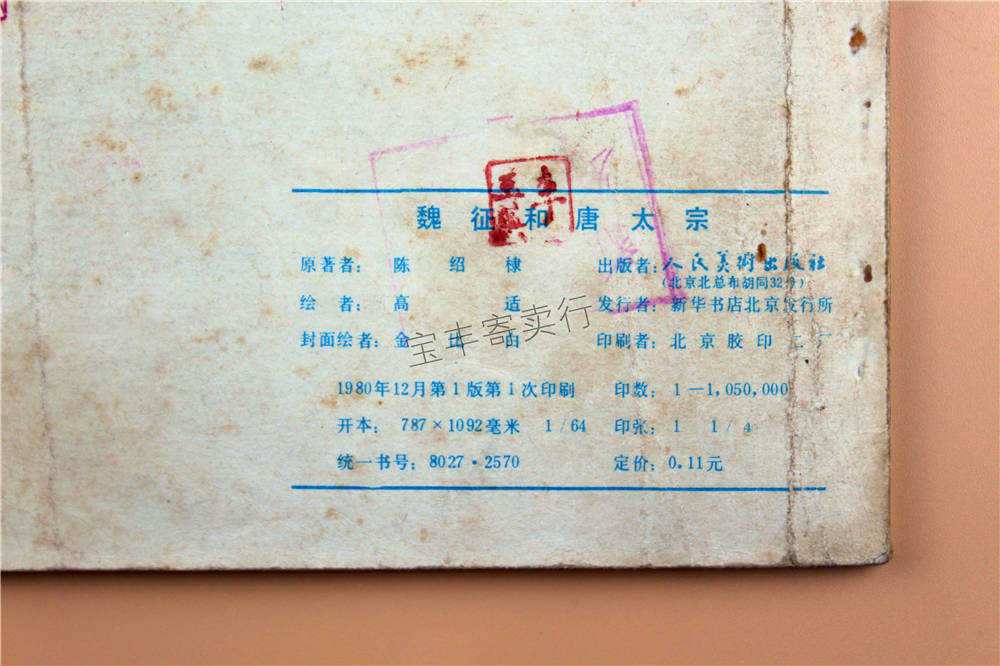 魏征和唐太宗
原著者：陈绍棣 出版者：人民美術出版社
（北京北总布胡同32号）
绘者：高适 发行者：新华书店北京发行所
封面绘者：金 山 印刷者：北京胶印二厂
1980年12月第1版第1次印刷 印数：1—1,050,000
开本：787×1092毫米 1/64 印张：1 1/4
统一书号：8027·2570 定价：0.11元
宝丰寄卖行